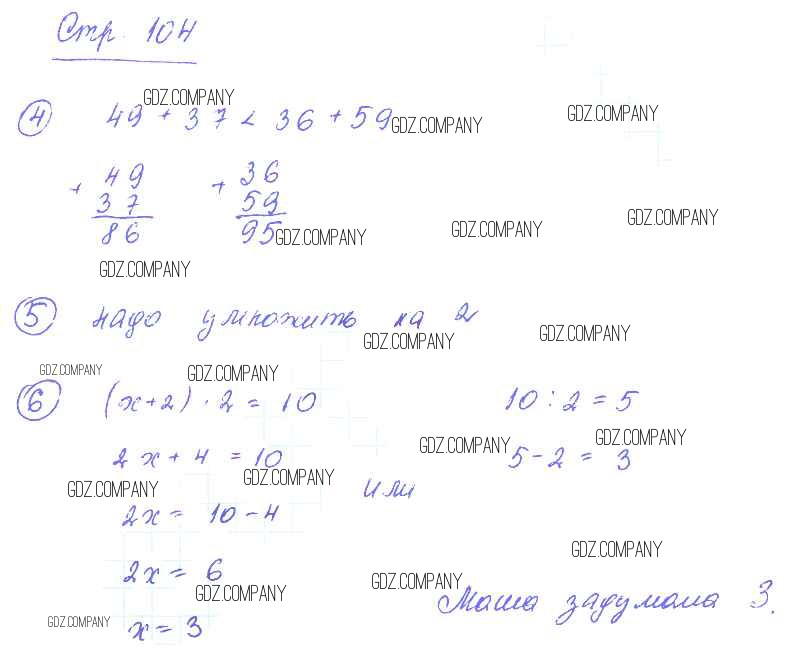 Стр. 104
GDZ.COMPANY
④ 49 + 37 < 36 + 59
GDZ.COMPANY
GDZ.COMPANY
+ 49 + 36
37 59
86 95
GDZ.COMPANY
GDZ.COMPANY
GDZ.COMPANY
GDZ.COMPANY
⑤ надо умножить на 2
GDZ.COMPANY
GDZ.COMPANY
GDZ.COMPANY
GDZ.COMPANY
⑥ (x+2) · 2 = 10 10 : 2 = 5
GDZ.COMPANY
GDZ.COMPANY
2x + 4 = 10 5 - 2 = 3
GDZ.COMPANY
GDZ.COMPANY
или
2x = 10 - 4
GDZ.COMPANY
2x = 6
GDZ.COMPANY
GDZ.COMPANY
Маша задумала 3.
GDZ.COMPANY
x = 3